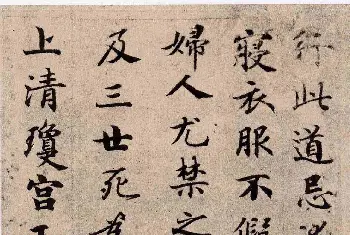 行此道忌
寢衣服不假
婦人尤禁之
及三世死為
上清瓊宮